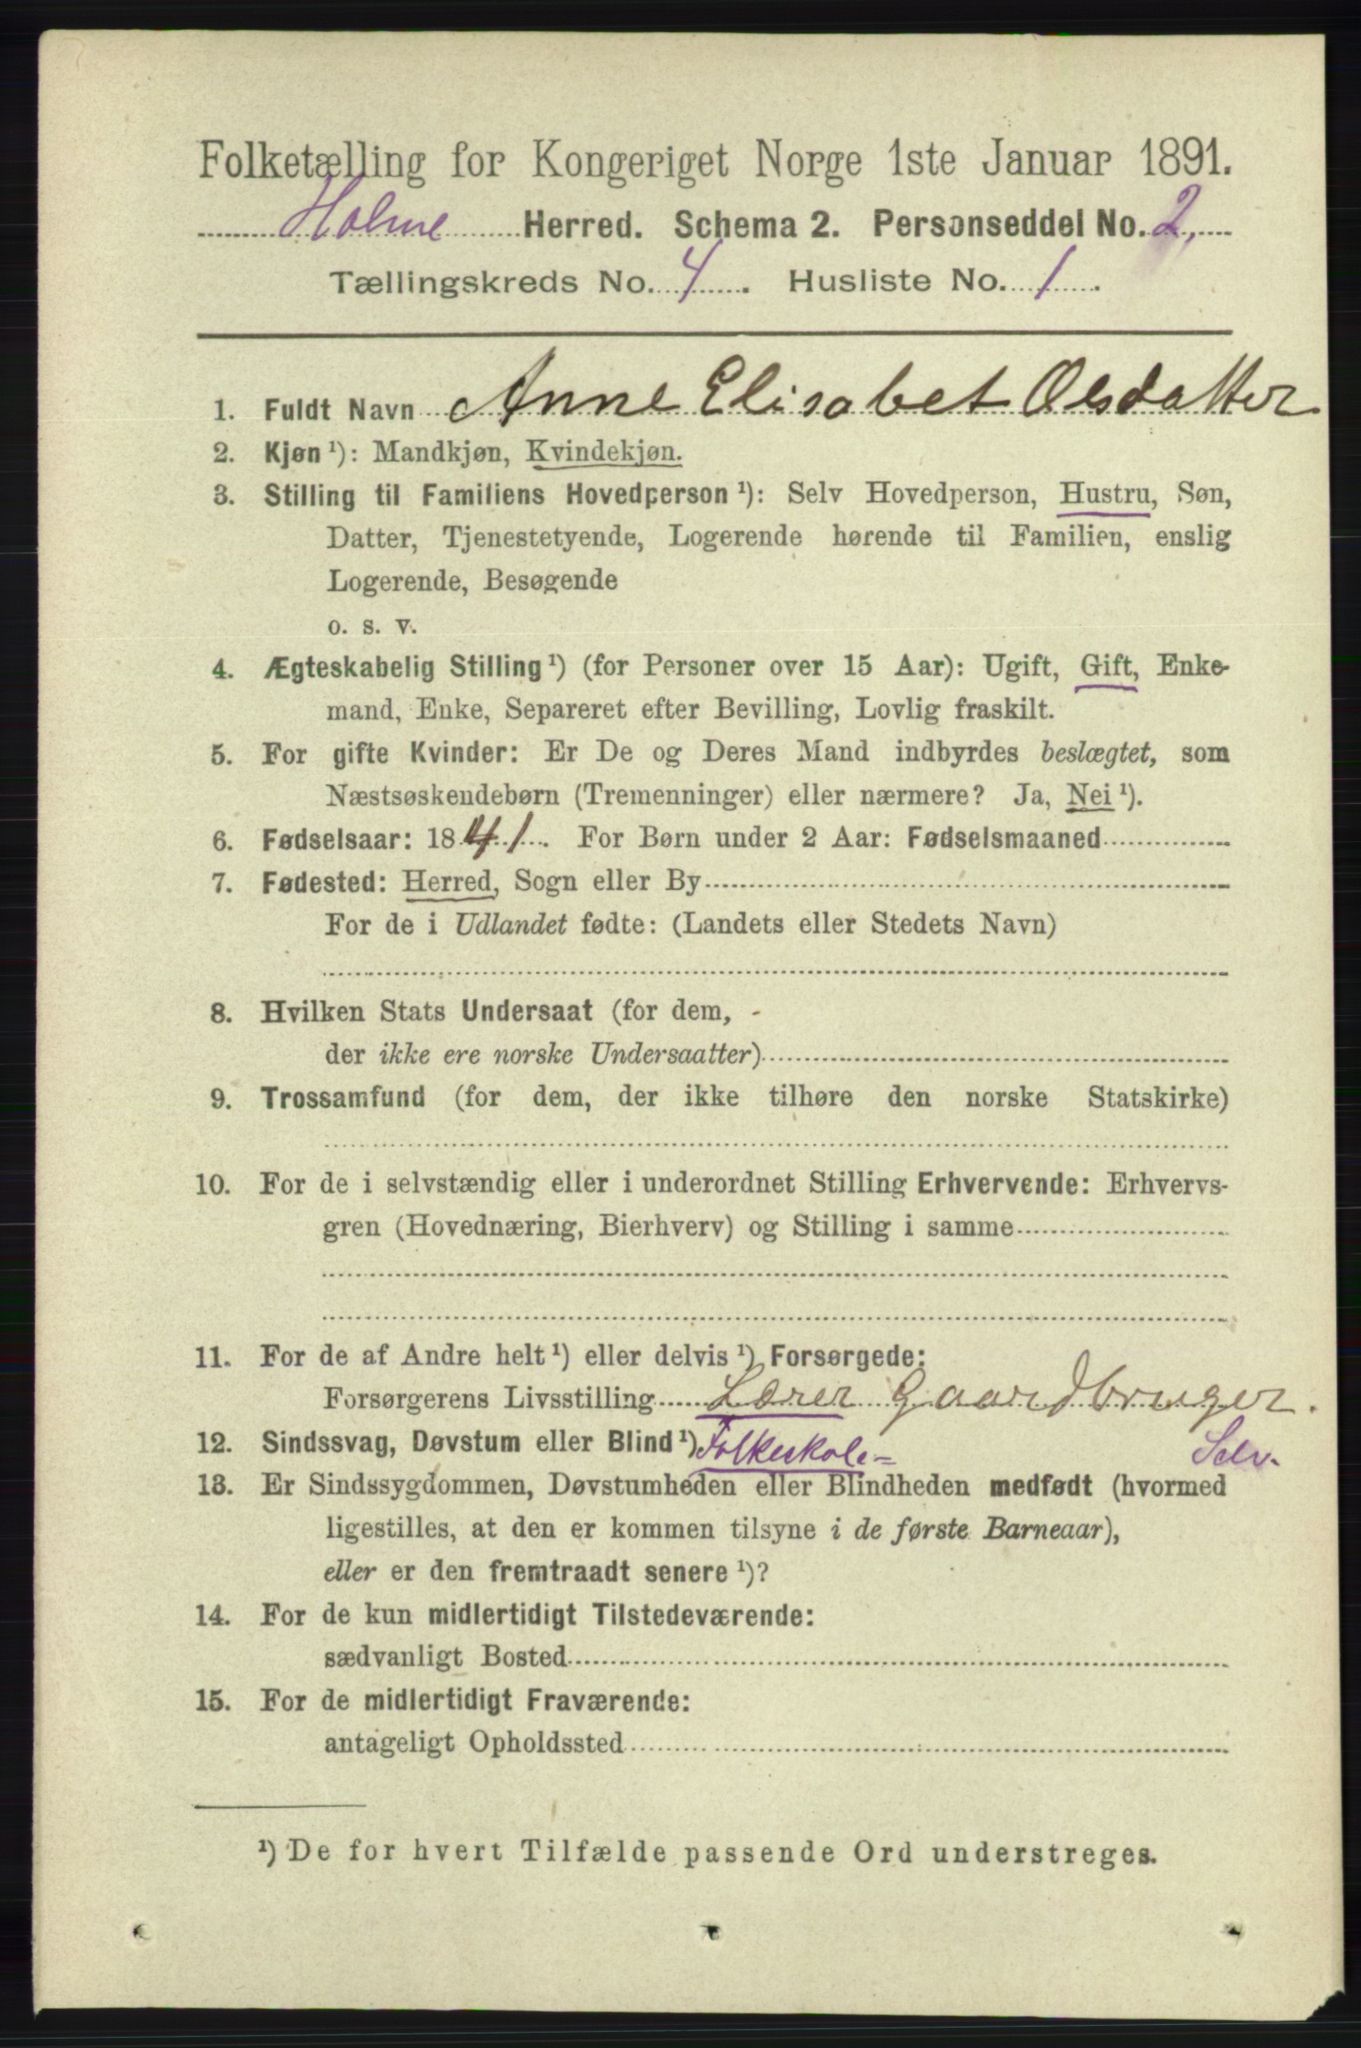 Folketælling for Kongeriget Norge 1ste Januar 1891.
Holme Herred. Schema 2. Personseddel No. 2,
Tællingskreds No. 4. Husliste No. 1.
1. Fuldt Navn Anne Elisabet Olsdatter
2. Kjøn ¹): Mandkjøn, Kvindekjøn.
3. Stilling til Familiens Hovedperson ¹): Selv Hovedperson, Hustru, Søn,
Datter, Tjenestetyende, Logerende hørende til Familien, enslig
Logerende, Besøgende
o. s. v.
4. Ægteskabelig Stilling ¹) (for Personer over 15 Aar): Ugift, Gift, Enke-
mand, Enke, Separeret efter Bevilling, Lovlig fraskilt.
5. For gifte Kvinder: Er De og Deres Mand indbyrdes beslægtet, som
Næstsøskendebørn (Tremenninger) eller nærmere? Ja, Nei ¹).
6. Fødselsaar: 1841. For Børn under 2 Aar: Fødselsmaaned
7. Fødested: Herred, Sogn eller By
For de i Udlandet fødte: (Landets eller Stedets Navn)
8. Hvilken Stats Undersaat (for dem,
der ikke ere norske Undersaatter)
9. Trossamfund (for dem, der ikke tilhøre den norske Statskirke)
10. For de i selvstændig eller i underordnet Stilling Erhvervende: Erhvervs-
gren (Hovednæring, Bierhverv) og Stilling i samme
11. For de af Andre helt ¹) eller delvis ¹) Forsørgede:
Forsørgerens Livsstilling Lærer Gaardbruger.
12. Sindssvag, Døvstum eller Blind ¹) Folkeskole= Selv.
13. Er Sindssygdommen, Døvstumheden eller Blindheden medfødt (hvormed
ligestilles, at den er kommen tilsyne i de første Barneaar),
eller er den fremtraadt senere ¹)?
14. For de kun midlertidigt Tilstedeværende:
sædvanligt Bosted
15. For de midlertidigt Fraværende:
antageligt Opholdssted
¹) De for hvert Tilfælde passende Ord understreges.